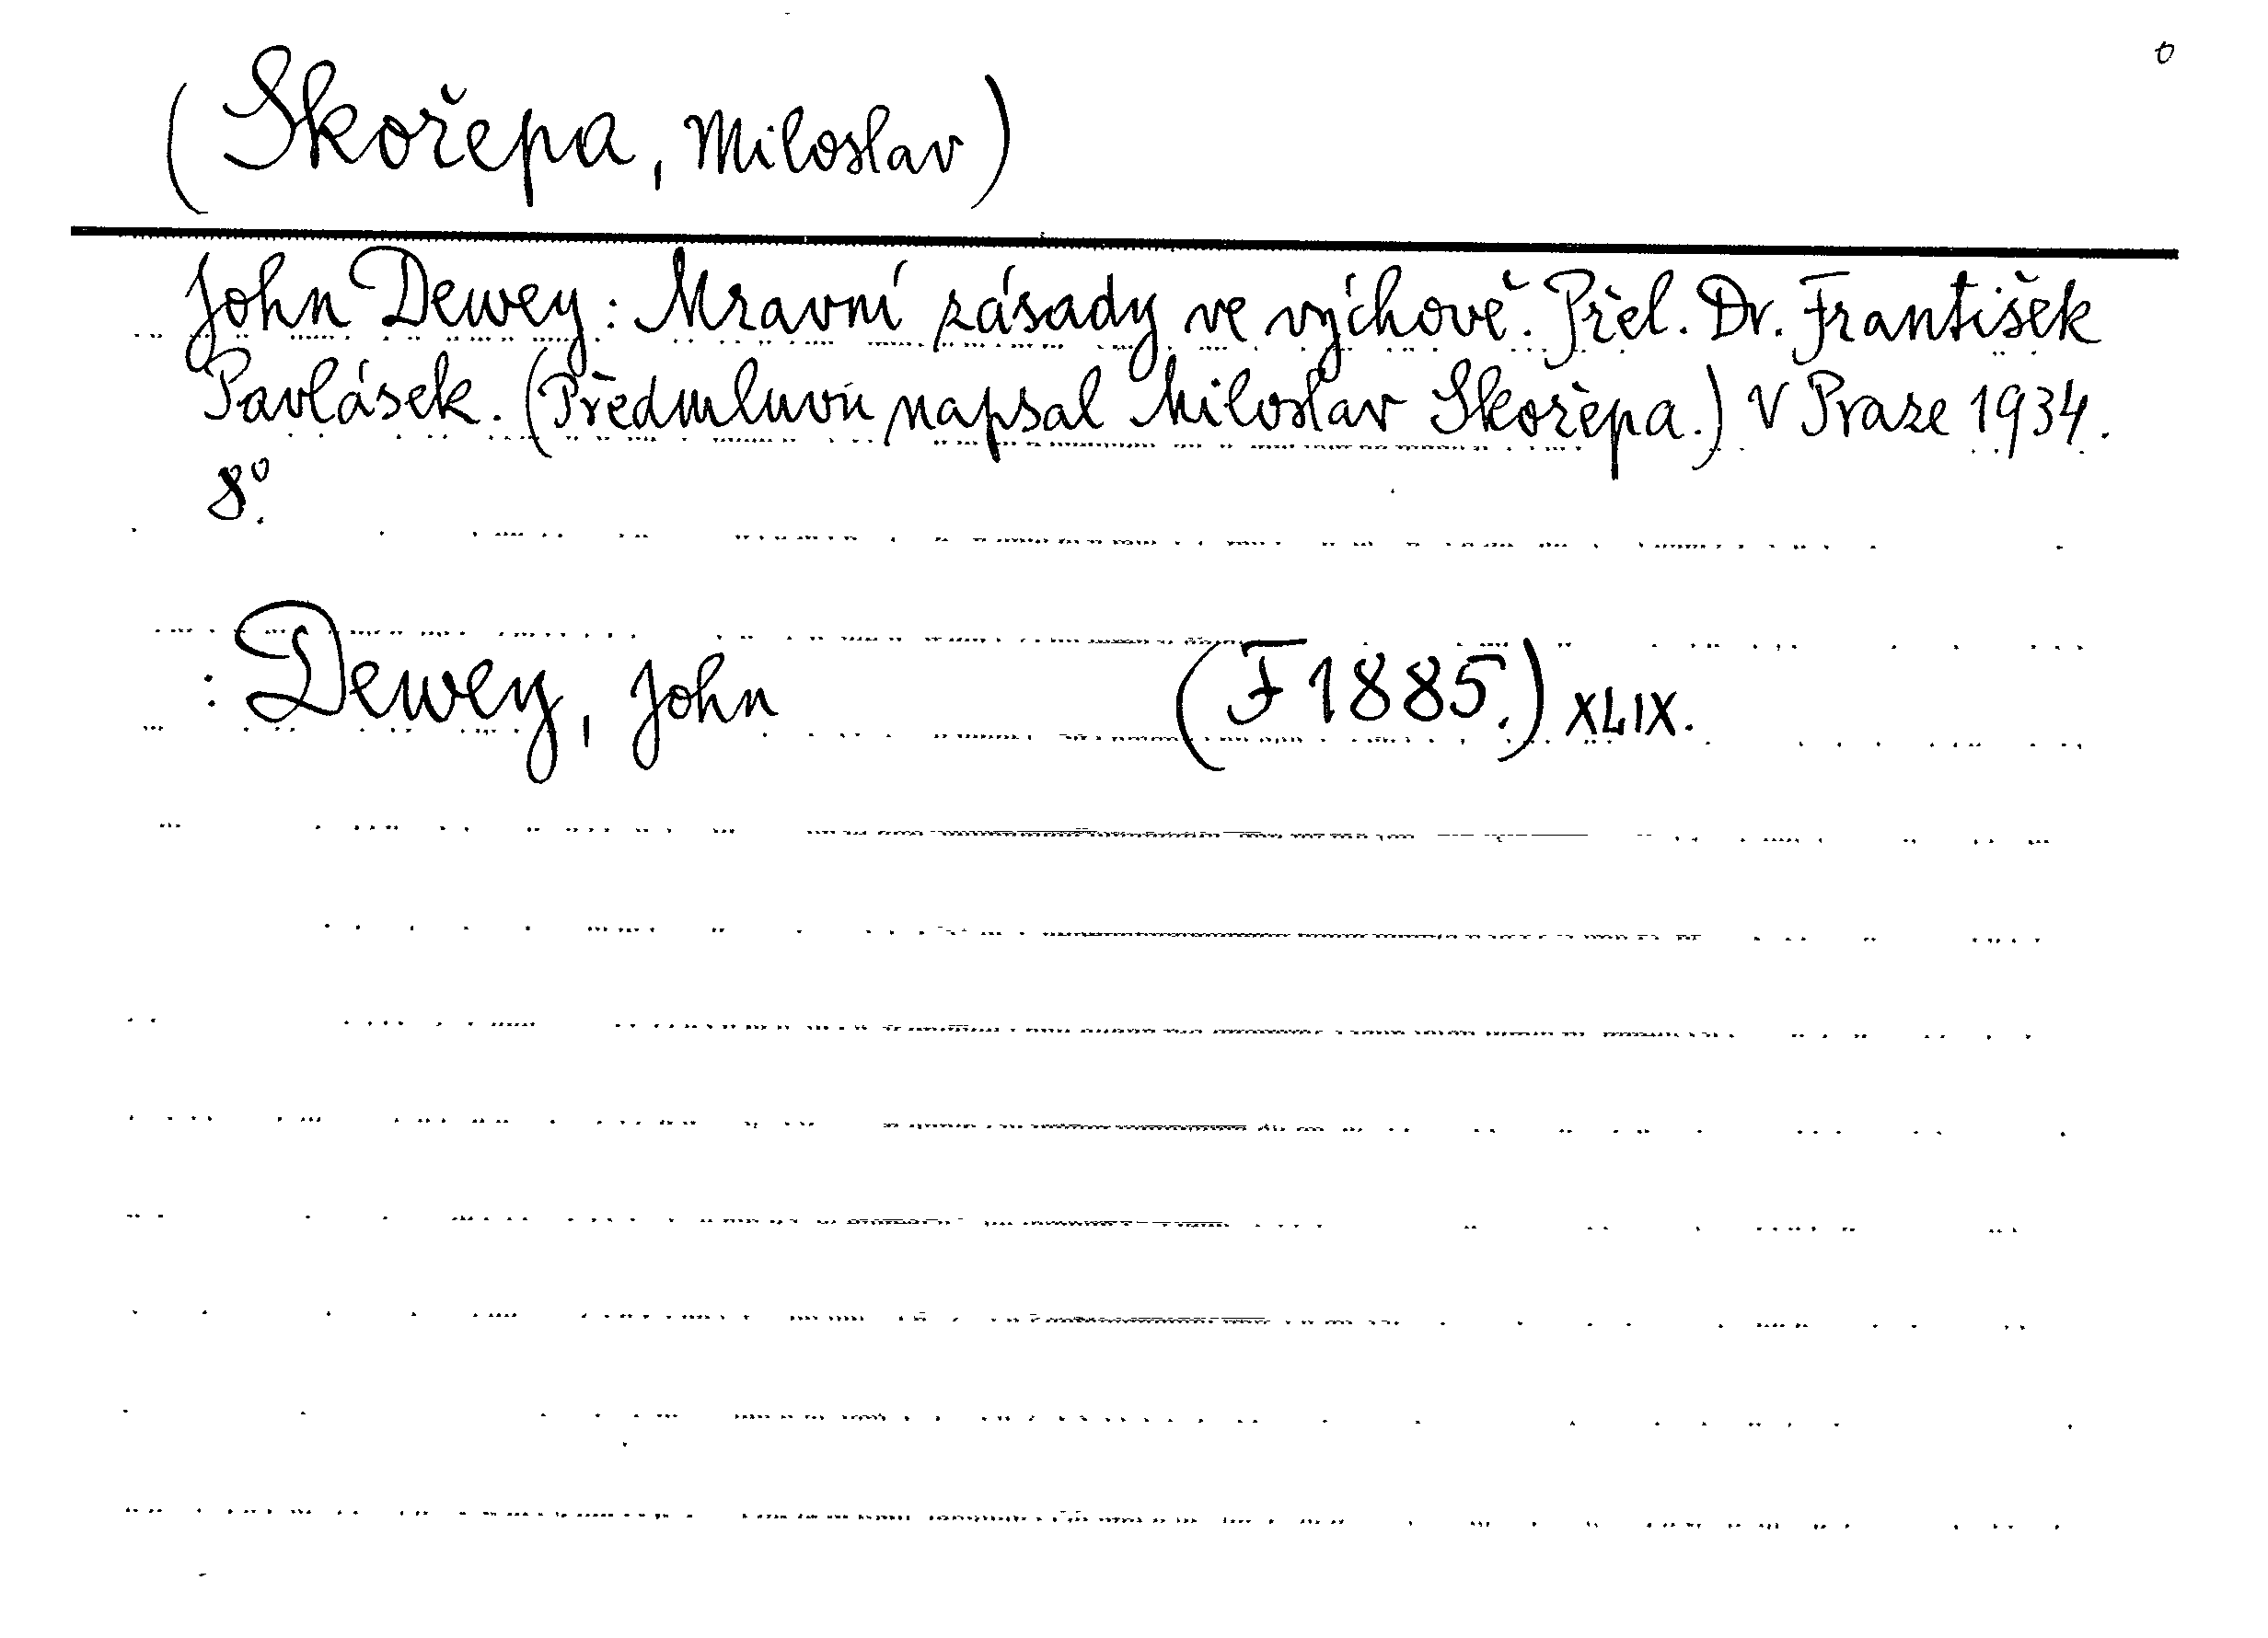 o
(Skořepa, Miloslav)
John Dewey: Mravní zásady ve výchově. Přel. Dr. František
Pavlásek. (Předmluvu napsal Miloslav Skořepa.) V Praze 1934.
8°.
: Dewey, John (F 1885.) XLIX.